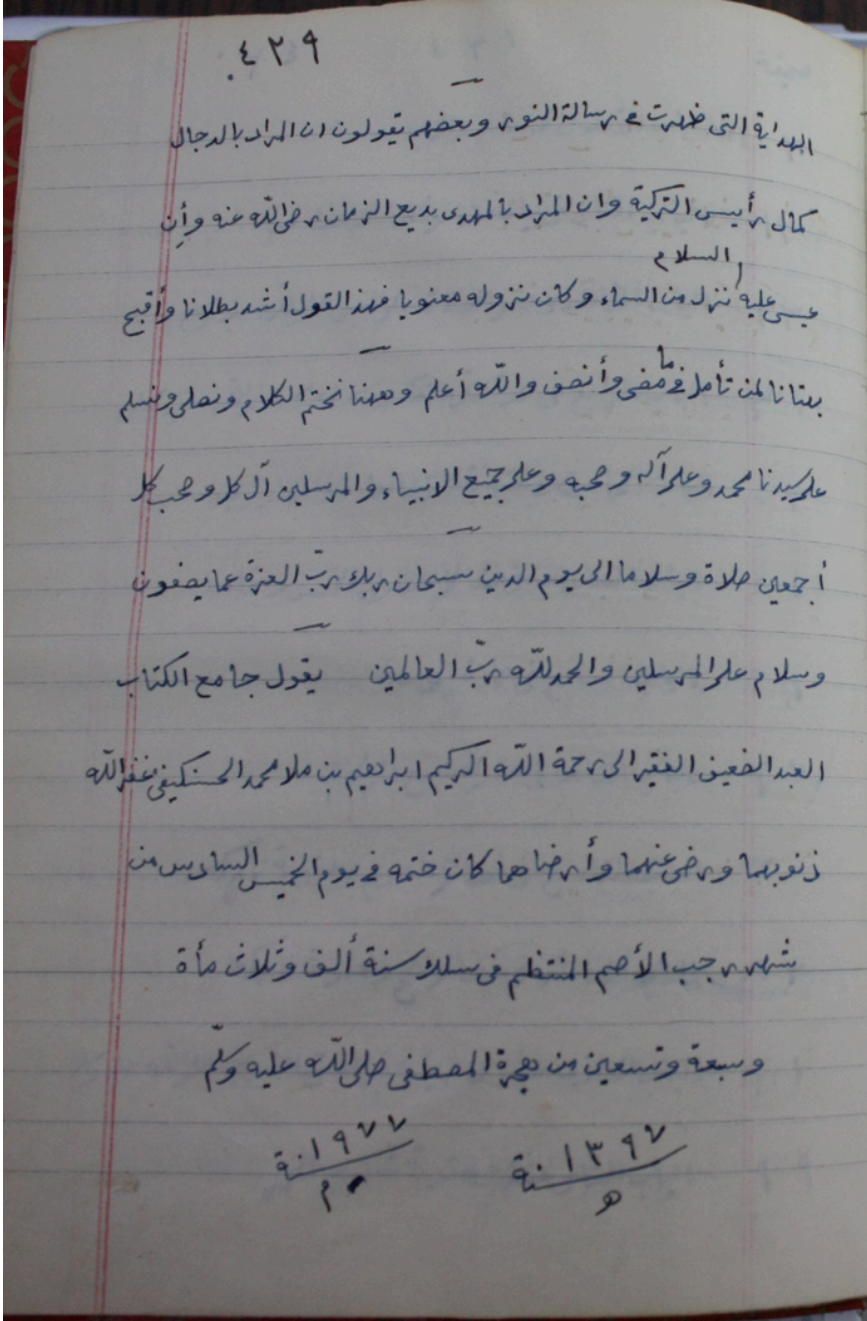 ٤٢٩
الهداية التى ظهرت فى رسالة النور وبعضهم يقولون ان المراد بالدجال
كمال رأيس التركية وان المراد بالمهدى بديع الزمان رضى الله عنه وأن
السلام
عيسى عليه نزل من السماء وكان نزوله معنويا فهذا القول أشد بطلانا وأقبح
بهتانا لمن تأمل فى ما مضى وأنصف والله أعلم وههنا نختم الكلام ونصلى ونسلم
على سيدنا محمد وعلى آله وصحبه وعلى جميع الانبياء والمرسلين آل كل وصحب كل
أجمعين صلاة وسلاما الى يوم الدين سبحان ربك ربّ العزة عما يصفون
وسلام على المرسلين والحمد لله ربّ العالمين يقول جامع الكتاب
العبد الضعيف الفقير الى رحمة الله الكريم ابراهيم بن ملا محمد الحسنكيفى غفر الله
ذنوبهما ورضى عنهما وأرضاهما كان ختمه فى يوم الخميس السادس من
شهر رجب الأصم المنتظم فى سلك سنة ألف وثلاث مأة
وسبعة وتسعين من هجرة المصطفى صلى الله عليه وسلّم
١٣٩٧ سنة ١٩٧٧ سنة
ه م